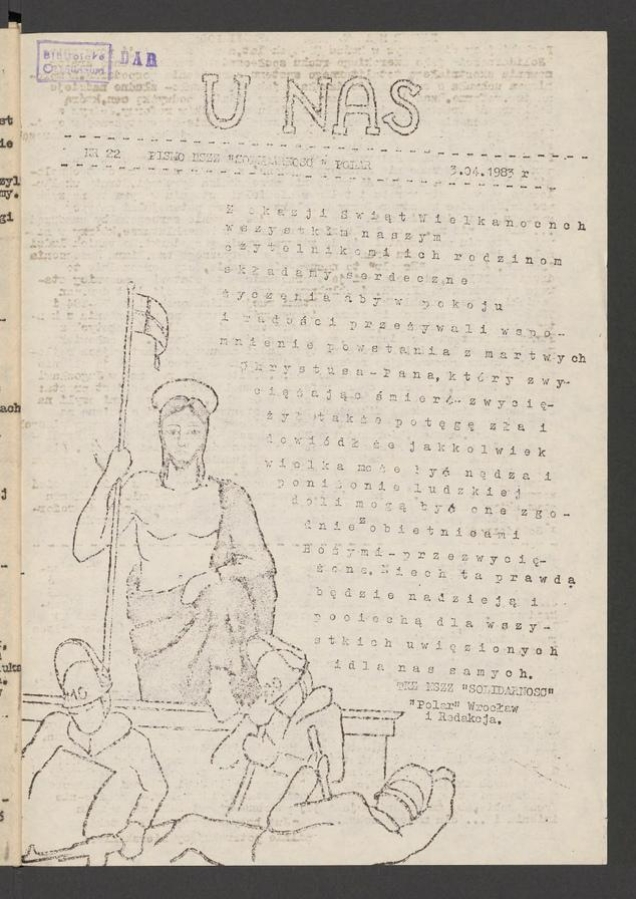 Biblioteka
Ossolineum
DAR
U NAS
NR 22 PISMO NSZZ "SOLIDARNOŚĆ" POLAR 3.04.1983 r
Z okazji Świąt Wielkanocnch
wszystkim naszym
czytelnikom i ich rodzinom
składamy serdeczne
życzenia aby w pokoju
i radości przeżywali wspo-
mnienie powstania z martwych
Chrystusa-Pana, który zwy-
ciężając śmierć-zwycię-
żył także potęgę zła i
dowiódł że jakkolwiek
wielka może być nędza i
poniżenie ludzkiej
doli mogą być one zgo-
dnie z obietnicami
Bożymi-przezwycię-
żone. Niech ta prawda
będzie nadzieją i
pociechą dla wszy-
stkich uwięzionych
i dla nas samych.
TKZ NSZZ "SOLIDARNOŚĆ"
"Polar" Wrocław
i Redakcja.